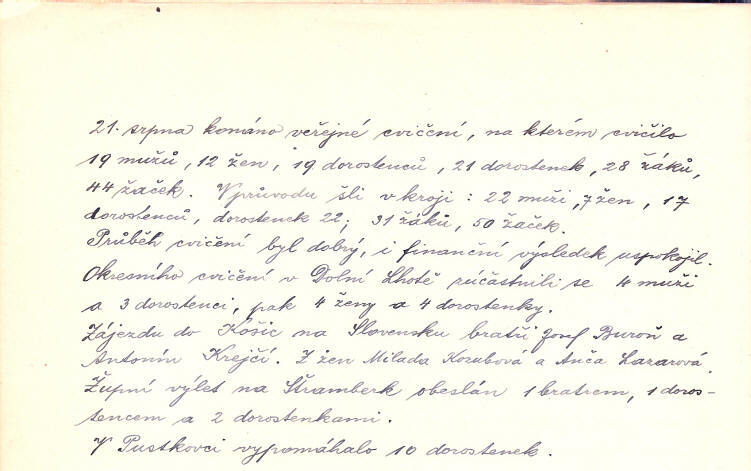 21. srpna konáno veřejné cvičení, na kterém cvičilo
19 mužů, 12 žen, 19 dorostenců, 21 dorostenek, 28 žáků,
44 žaček. V průvodu šli v kroji : 22 muži, 7 žen, 17
dorostenců, dorostenek 22, 31 žáků, 50 žaček.
Průběh cvičení byl dobrý, i finanční výsledek uspokojil.
Okresního cvičení v Dolní Lhotě zúčastnili se 4 muži
a 3 dorostenci, pak 4 ženy a 4 dorostenky.
Zájezdu do Košic na Slovensku bratři Josef Buroň a
Antonín Krejčí. Z žen Milada Kozubová a Anča Lazarová.
Župní výlet na Štramberk obeslán 1 bratrem, 1 doros-
tencem a 2 dorostenkami.
V Pustkovci vypomáhalo 10 dorostenek.